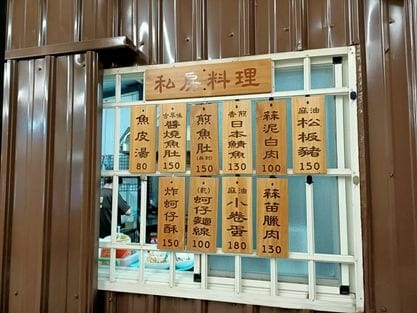 私房料理
魚皮湯 80
古早味 醬燒魚肚 150
煎魚肚 150
香煎 日本鯖魚 130
蒜泥白肉 100
麻油 松板豬 150
炸蚵仔酥 150
(乾) 蚵仔麵線 100
麻油 小卷蛋 180
蒜苗臘肉 130